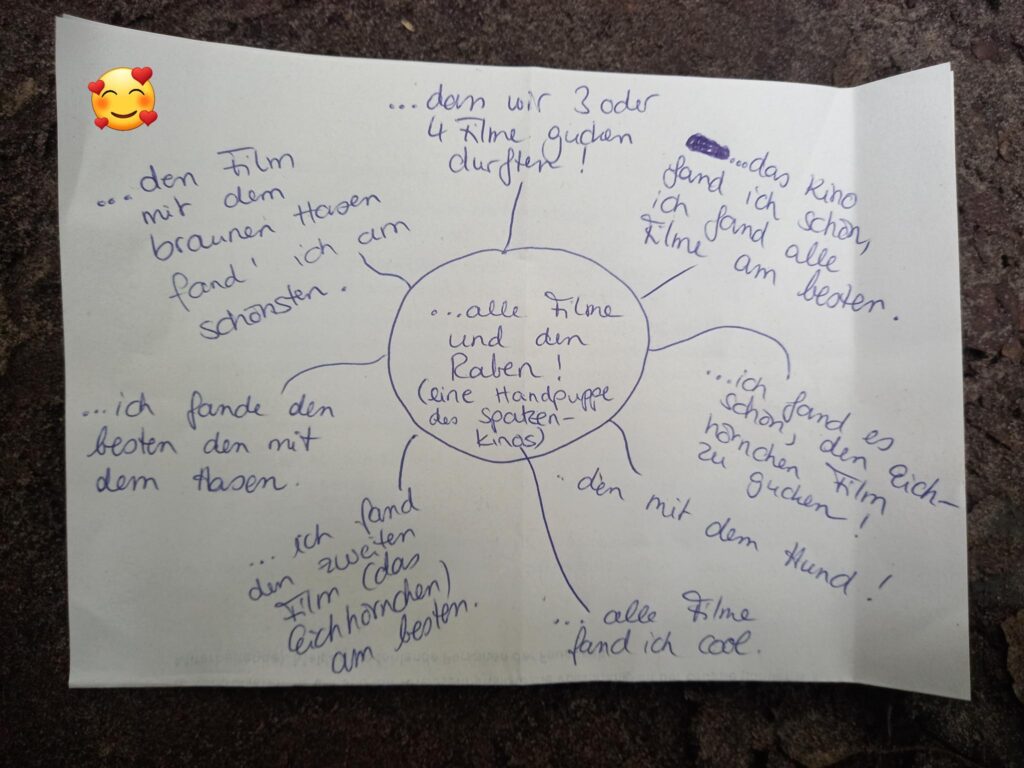 ...dass wir 3 oder
4 Filme gucken
durften!
...das Kino
fand ich schön,
ich fand alle
Filme am besten.
...den Film
mit dem
braunen Hasen
fand' ich am
schönsten.
...alle Filme
und den
Raben!
(eine Handpuppe
des Spatzen-
kinos)
...ich fand es
schön, den Eich-
hörnchen Film
zu gucken!
...ich fande den
besten den mit
dem Hasen.
..den mit dem Hund!
...ich fand
den zweiten
Film (das
Eichhörnchen)
am besten.
...alle Filme
fand ich cool.